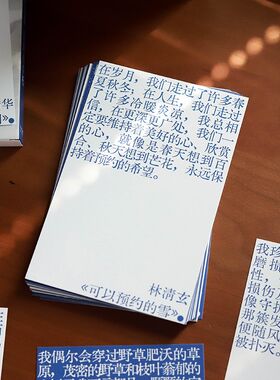 华
》
在岁月，我们走过了许多春
夏秋冬；在人生，我们走过
了许多冷暖炎凉，我总相
信，在更深更广处，我们一
定要维持着美好的心、欣赏
的心，就像是春天想到百
合、秋天想到芒花，永远保
持着预约的希望。
林清玄
《可以预约的雪》
我偶尔会穿过野草肥沃的草
原，茂密的野草和枝叶蓊郁的
我珍
磨损
性，
损伤
像守护
那簇
便随风
被扑灭